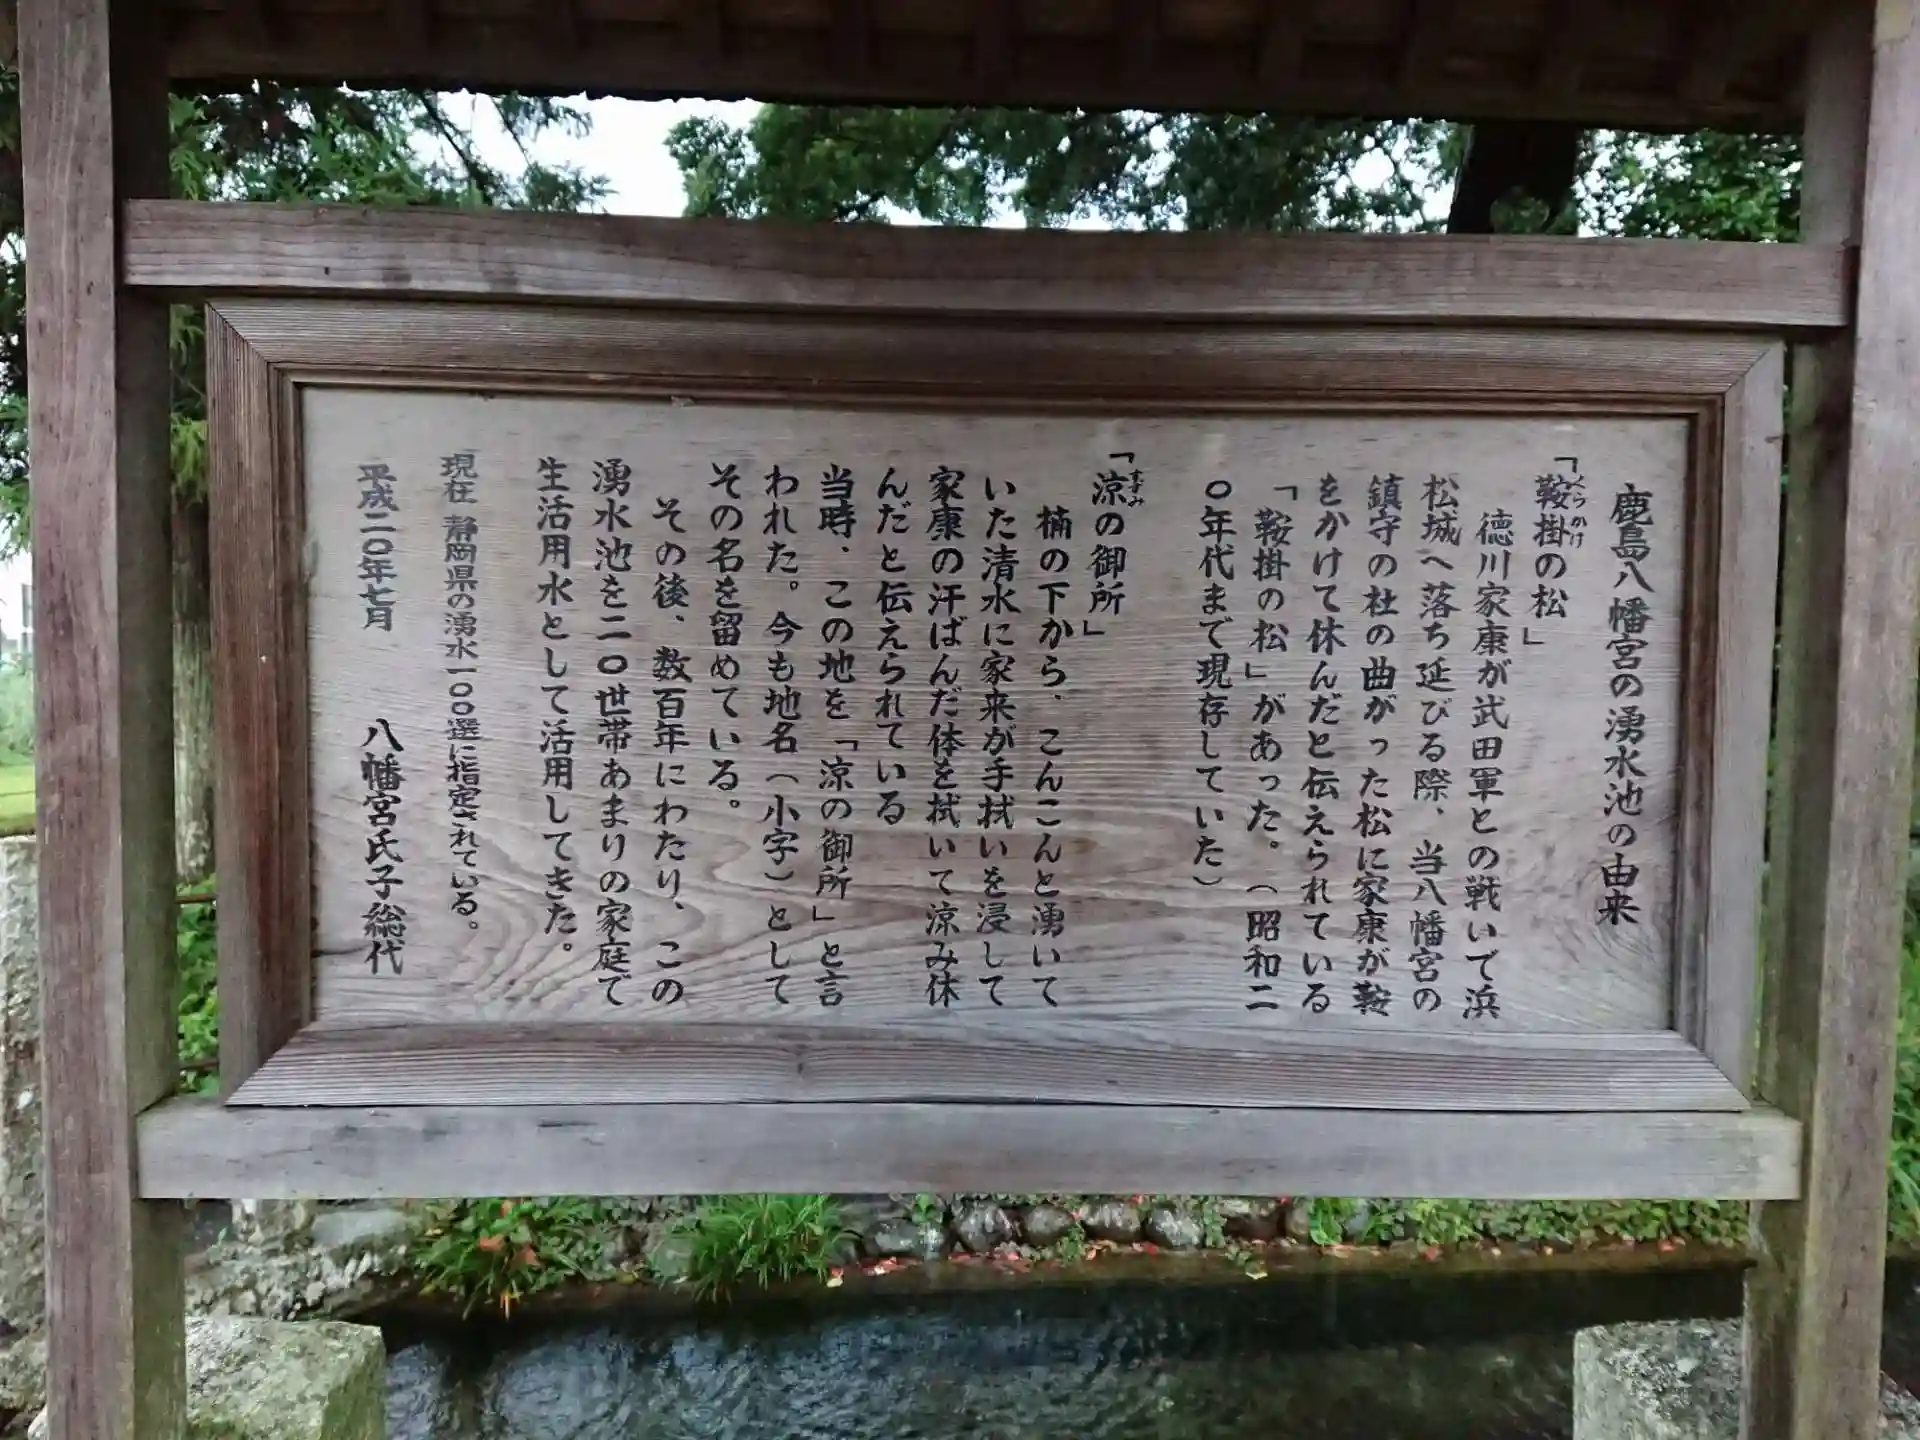 鹿島八幡宮の湧水池の由来
「鞍掛の松」
くらかけ
徳川家康が武田軍との戦いで浜
松城へ落ち延びる際、当八幡宮の
鎮守の社の曲がった松に家康が鞍
をかけて休んだと伝えられている
「鞍掛の松」があった。（昭和二
〇年代まで現存していた）
「涼の御所」
すずみ
楠の下から、こんこんと湧いて
いた清水に家来が手拭いを浸して
家康の汗ばんだ体を拭いて涼み休
んだと伝えられている
当時、この地を「涼の御所」と言
われた。今も地名（小字）として
その名を留めている。
その後、数百年にわたり、この
湧水池を二〇世帯あまりの家庭で
生活用水として活用してきた。
現在 静岡県の湧水一〇〇選に指定されている。
平成二〇年七月 八幡宮氏子総代